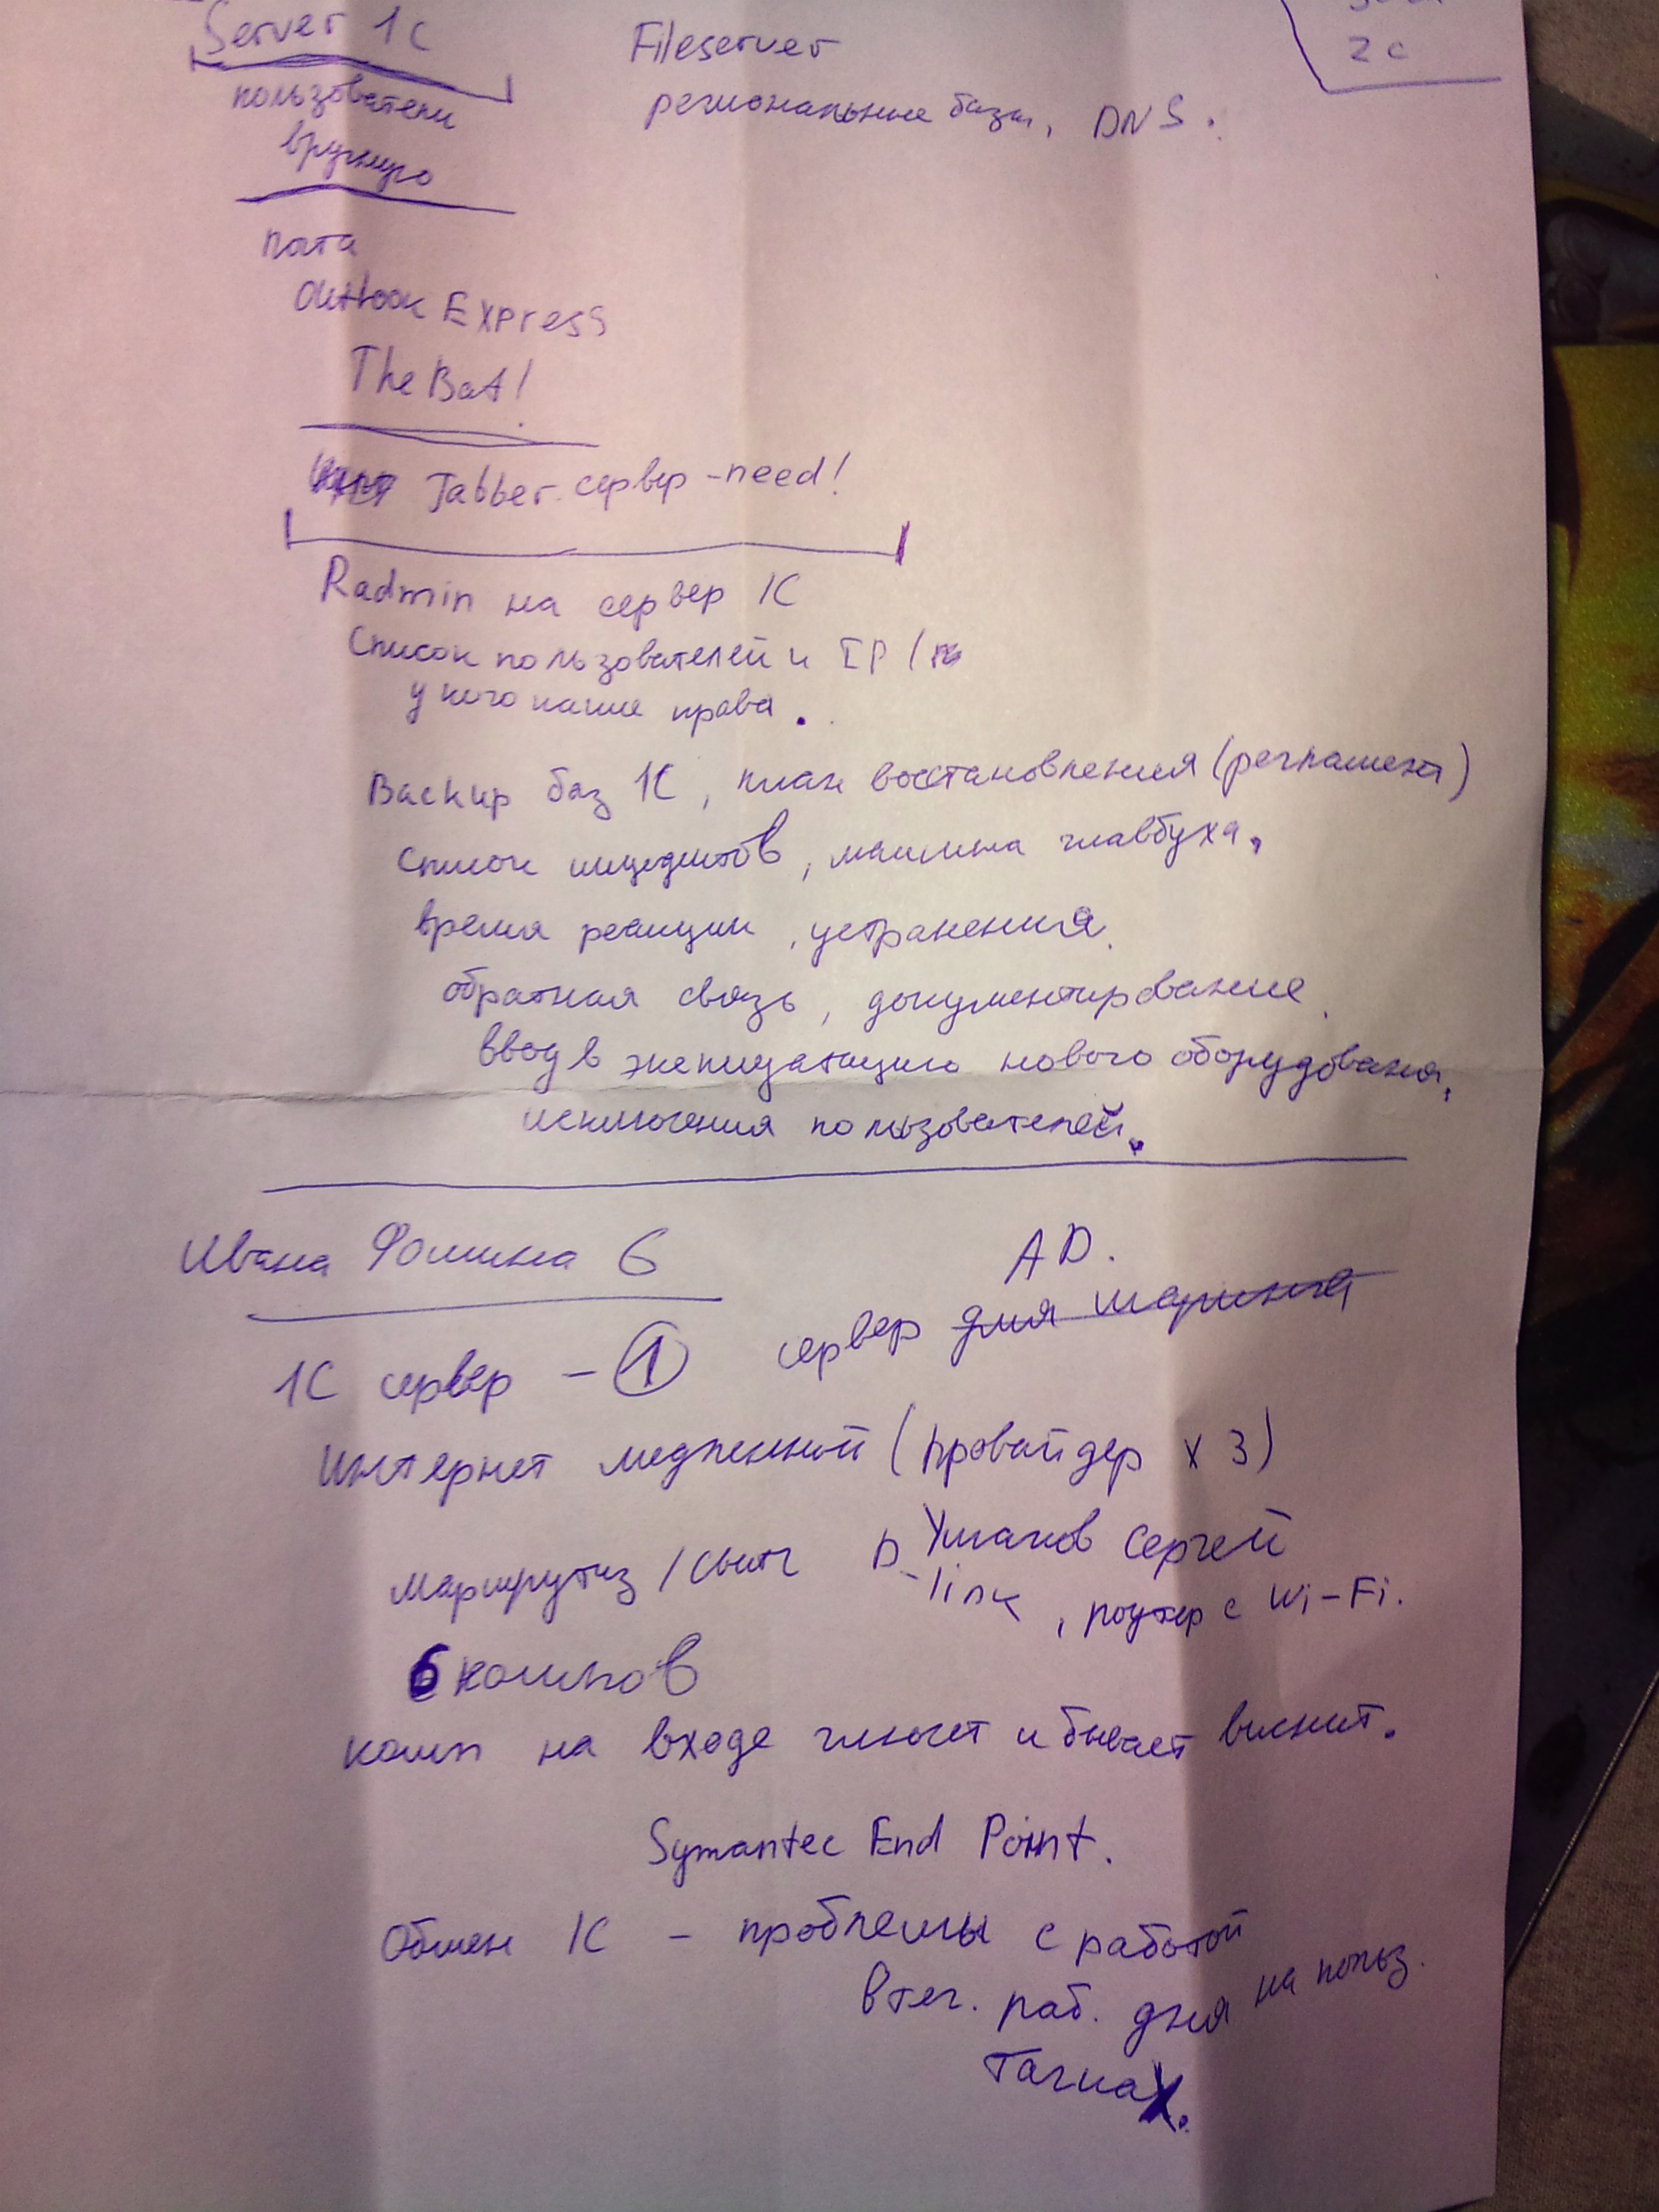 Server 1C
Fileserver
2 c
пользователи
вручную
региональные базы, DNS.
почта
Outlook Express
The Bat!
Jabber сервер - need!
Radmin на сервер 1С
Список пользователей и IP /
у кого какие права.
Backup баз 1С, план восстановления (регламент)
список инцидентов, машина главбуха,
время реакции, устранения,
обратная связь, документирование,
ввод в эксплуатацию нового оборудования,
исключения пользователей.
Ивана Фомина 6
AD.
1С сервер - 1 сервер для шаринга
Интернет медленный (провайдер x 3)
Ушаков Сергей
Маршрутиз / свитч D-link, роутер с Wi-Fi.
6 компов
комп на входе глючит и бывает виснит.
Symantec End Point.
Обмен 1С - проблемы с работой
в теч. раб. дня на польз.
тачках.